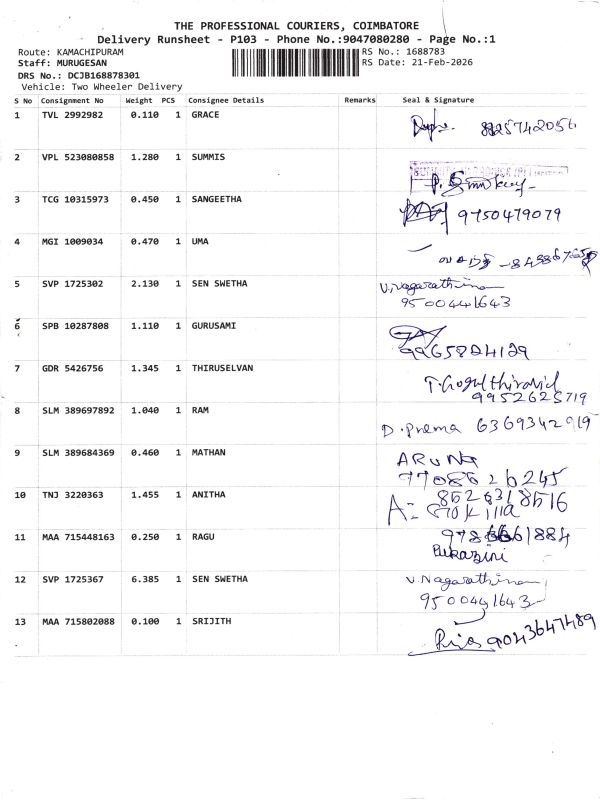 THE PROFESSIONAL COURIERS, COIMBATORE
Delivery Runsheet - P103 - Phone No.:9047080280 - Page No.:1
Route: KAMACHIPURAM RS No.: 1688783
Staff: MURUGESAN RS Date: 21-Feb-2026
DRS No.: DCJB168878301
Vehicle: Two Wheeler Delivery
S No Consignment No Weight PCS Consignee Details Remarks Seal & Signature
1 TVL 2992982 0.110 1 GRACE
2 VPL 523080858 1.280 1 SUMMIS
3 TCG 10315973 0.450 1 SANGEETHA 9750479079
4 MGI 1009034 0.470 1 UMA
5 SVP 1725302 2.130 1 SEN SWETHA V.Nagarathinam
9500441643
6 SPB 10287808 1.110 1 GURUSAMI
9965824129
7 GDR 5426756 1.345 1 THIRUSELVAN
9952625719
8 SLM 389697892 1.040 1 RAM D.Prema 6369342919
9 SLM 389684369 0.460 1 MATHAN ARUNA
7708626245
10 TNJ 3220363 1.455 1 ANITHA 8526318516
11 MAA 715448163 0.250 1 RAGU
12 SVP 1725367 6.385 1 SEN SWETHA V.Nagarathinam
9500441643
13 MAA 715802088 0.100 1 SRIJITH 9043647489